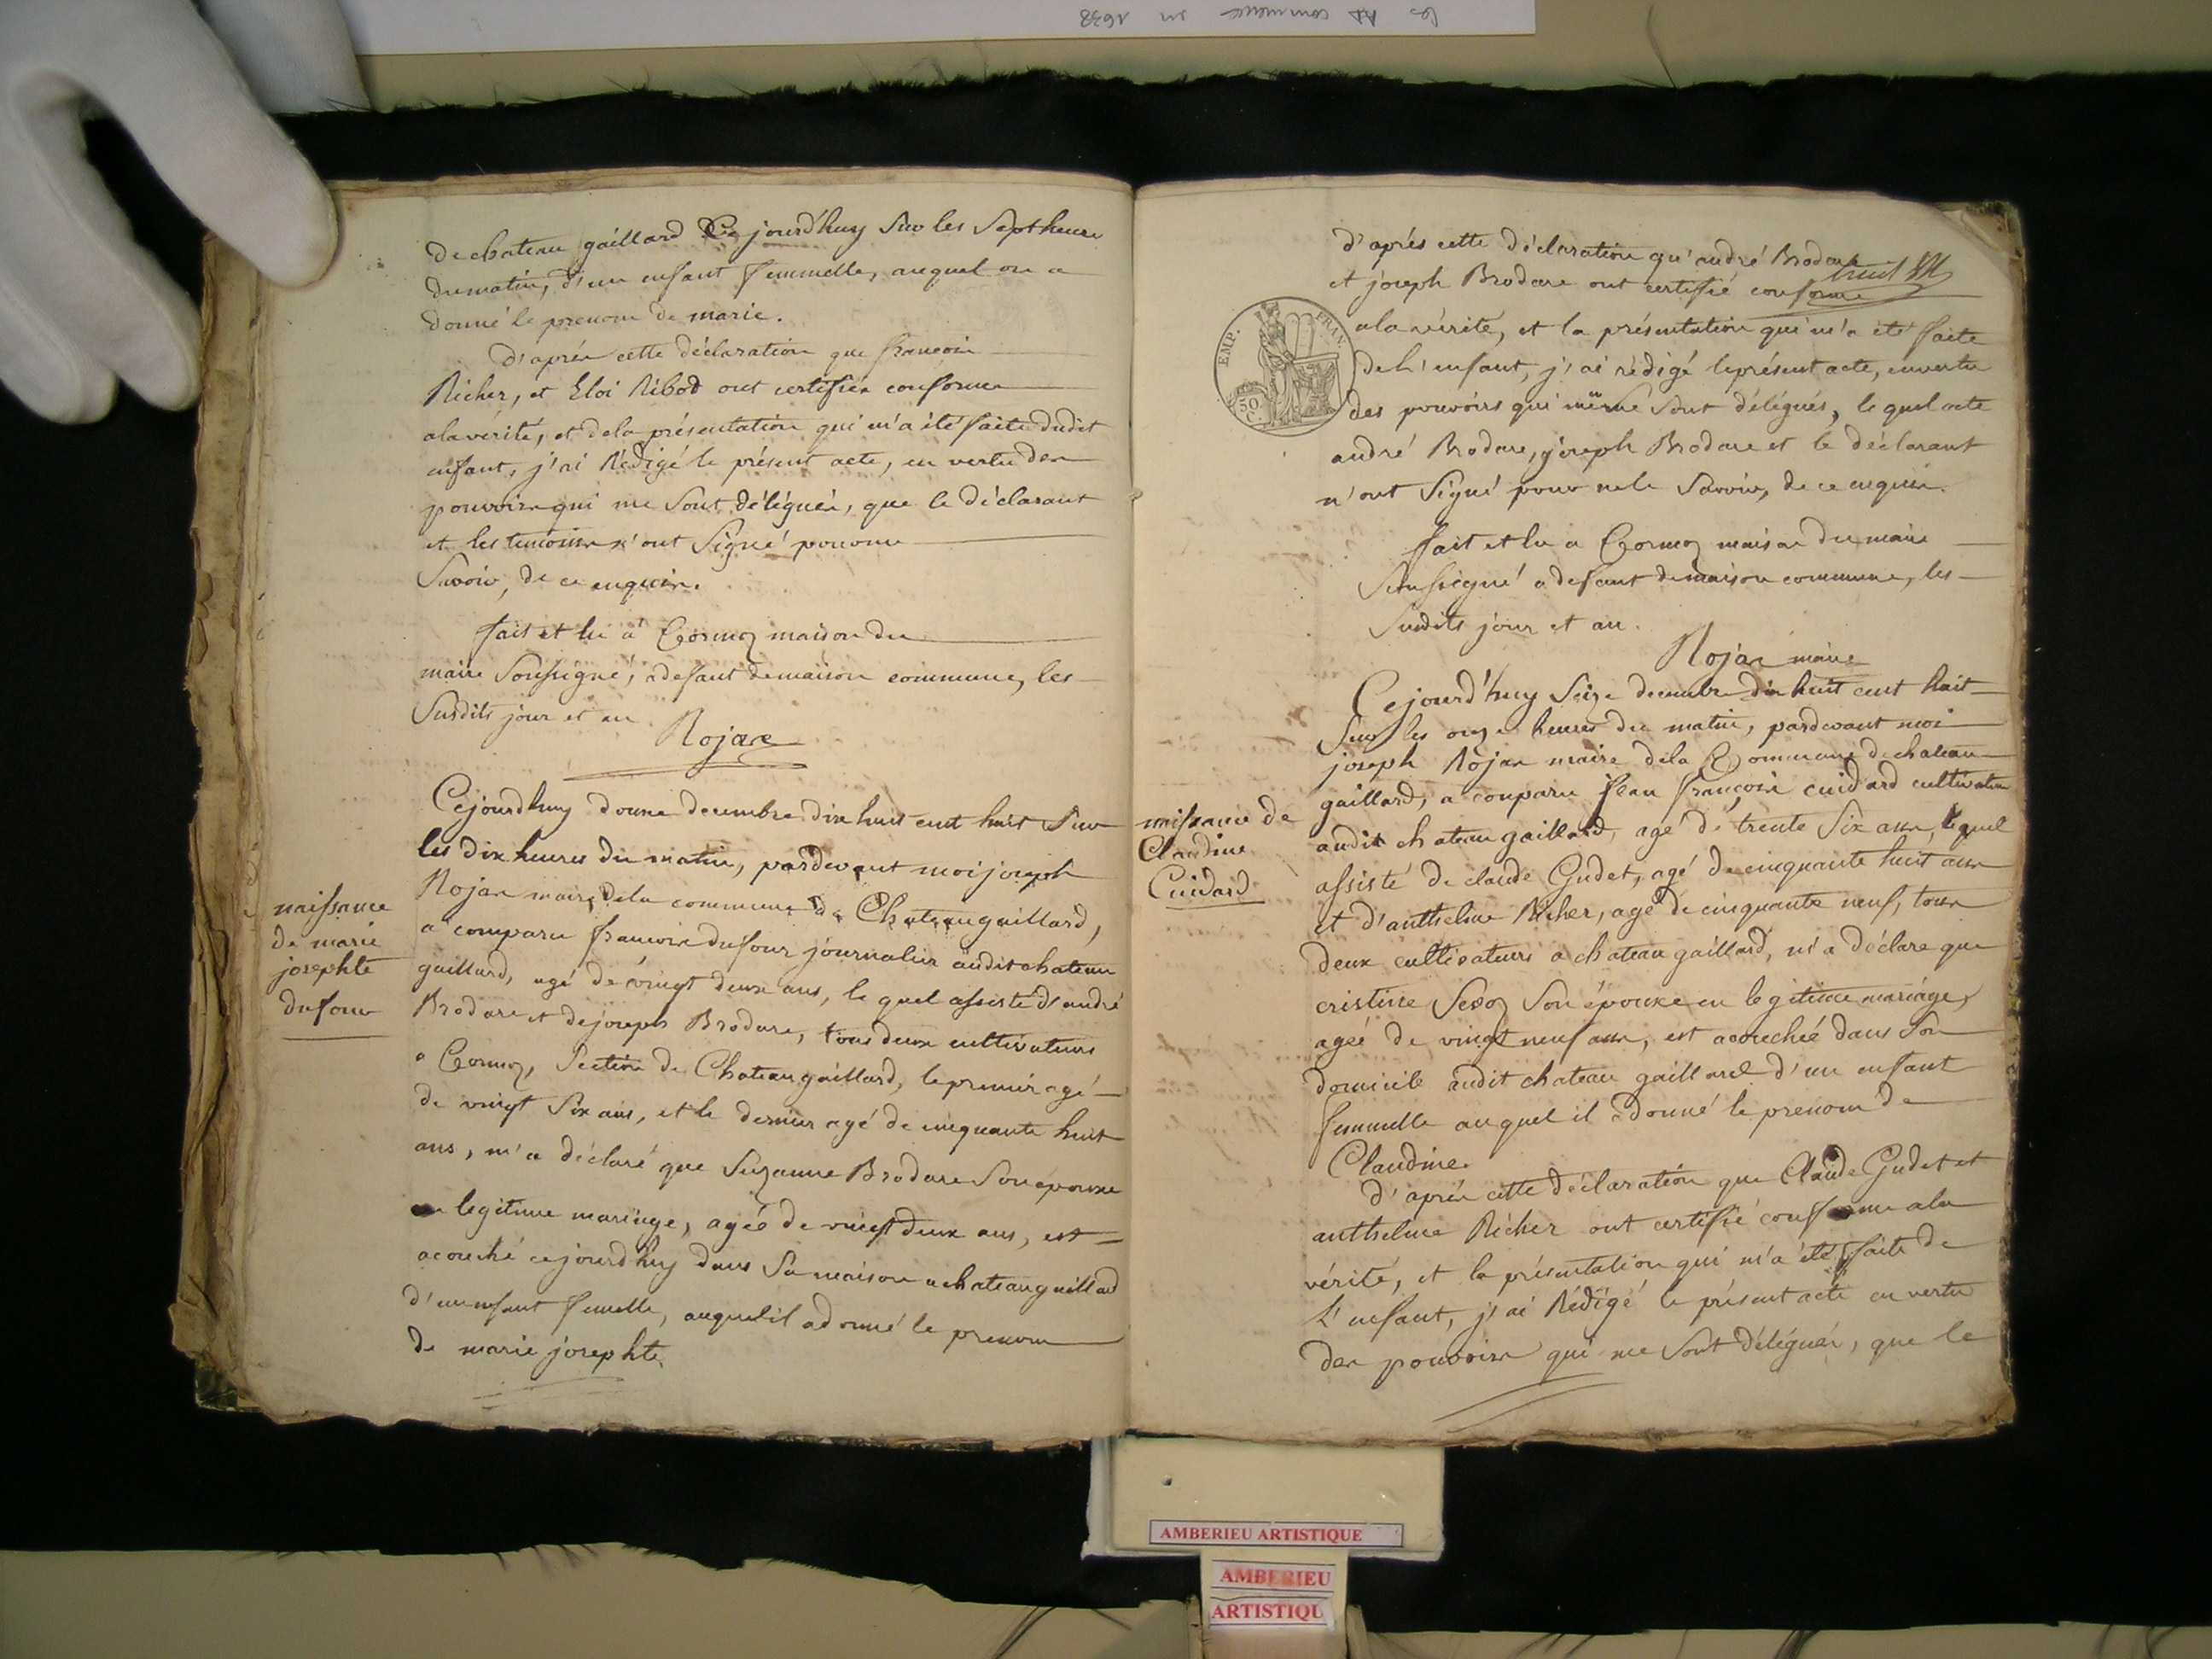 les commence en 1638
de chateau gaillard Ce jourd'huy Sur les Sept heures
du matin, d'un enfant femmelle, auquel on a
donné le prenom de marie.
d'après cette déclaration que francois
Richer, et Eloi Ribod ont certifiés conforme
ala vérité, et dela présentation qui m'a été faite dudit
enfant, j'ai Rédigé le présent acte, en vertu des
pouvoirs qui me Sont délégués, que le déclarant
et les temoins n'ont Signé pour ne
Savoir, de ce enquis.
fait et lu a Cormoz maison du
maire Soussigné, a defaut de maison commune, les
Susdits jour et an
Rojax
naissance
de marie
josephte
dufour
Cejourdhuy douze decembre dix huit cent huit Sur
les dix heures du matin, pardevant moi joseph
Rojax maire dela commune de Chateaugaillard,
a comparu francois dufour journalier audit chateau
gaillard, agé de vingt deux ans, le quel assisté d'andré
Brodare et de joseph Brodare, tous deux cultivateurs
a Cormoz, Section de Chateaugaillard, le premier agé
de vingt Six ans, et le dernier agé de cinquante huit
ans, m'a déclaré que Suzanne Brodare Son épouse
en legitime mariage, agée de vingt deux ans, est
acouché cejourdhuy dans Sa maison a chateaugaillard
d'un enfant femelle, auquel il a donné le prenom
de marie josephte
d'après cette déclaration qu'andré Brodare
et joseph Brodare ont certifié conforme
EMP. FRAN.
50 C.
ala vérité, et la présentation qui m'a été faite
de l'enfant, j'ai rédigé le présent acte, en vertu
des pouvoirs qui me Sont délégués, le quel acte
andré Brodare, joseph Brodare et le déclarant
n'ont Signé pour ne le Savoir, de ce enquis.
fait et lu a Cormoz maison du maire
Soussigné a defaut de maison commune, les
Susdits jour et an.
Rojax maire
naissance de
Claudine
Cuidard
Cejourd'huy Seize decembre dix huit cent huit
Sur les onze heures du matin, pardevant moi
joseph Rojax maire dela Commune de chateau
gaillard, a comparu jean françois cuidard cultivateur
audit chateau gaillard, agé de trente Six ans, lequel
assisté de claude Gudet, agé de cinquante huit ans
et d'anthelme Richer, agé de cinquante neuf, tous
deux cultivateurs a chateau gaillard, m'a déclare que
cristine Sevoz Son épouse en legitime mariage,
agée de vingt neuf ans, est acouchée dans Son
domicile audit chateau gaillard d'un enfant
femmelle auquel il a donné le prenom de
Claudine.
d'après cette déclaration que Claude Gudet et
anthelme Richer ont certifié conforme ala
vérité, et la présentation qui m'a été faite de
l'enfant, j'ai Rédigé le présent acte en vertu
des pouvoirs qui me Sont délégués, que le
AMBERIEU ARTISTIQUE
AMBERIEU
ARTISTIQU